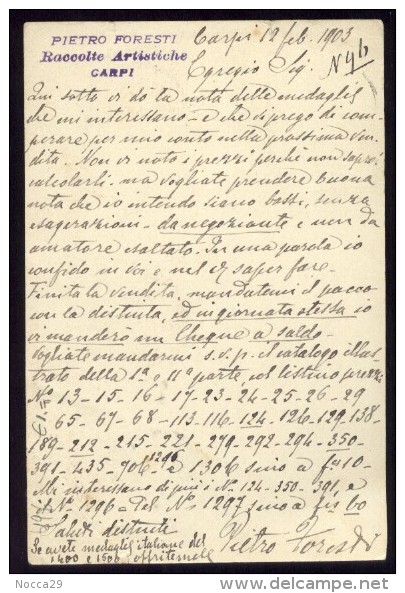 PIETRO FORESTI
Raccolte Artistiche
CARPI
Carpi 12 feb. 1903
Egregio Sig.
Qui sotto vi dò la nota delle medaglie
che mi interessano - e che vi prego di com-
perare per mio conto nella prossima ven-
dita. Non vi noto i prezzi perchè non saprei
calcolarli. ma vogliate prendere buona
nota che io intendo siano bassi, senza
esagerazioni - da negoziante e non da
amatore esaltato. In una parola io
confido in Voi e nel vs saper fare.
Finita la vendita, mandatemi il pacco
con la distinta, ed in giornata stessa io
vi manderò un Cheque a saldo.
Vogliate mandarmi s.v.p. il catalogo illus-
trato della 1ª e 11ª parte, col listino prezzi
Nº 13-15-16-17-23-24-25-26-29
65-67-68-113-116-124-126-129-138-
189-212-215-221-279-292-294-350-
391-435-706 1296 e 1306 sino a fr 10-
Mi interessano di più i Nº 124-350-391, e
Nº 1296 - Pel Nº 1297 sino a frs 60
Saluti distinti
Pietro Foresti
Se avete medaglie italiane del
1400 e 1500 offritemele
Nocca29
delcampe.net